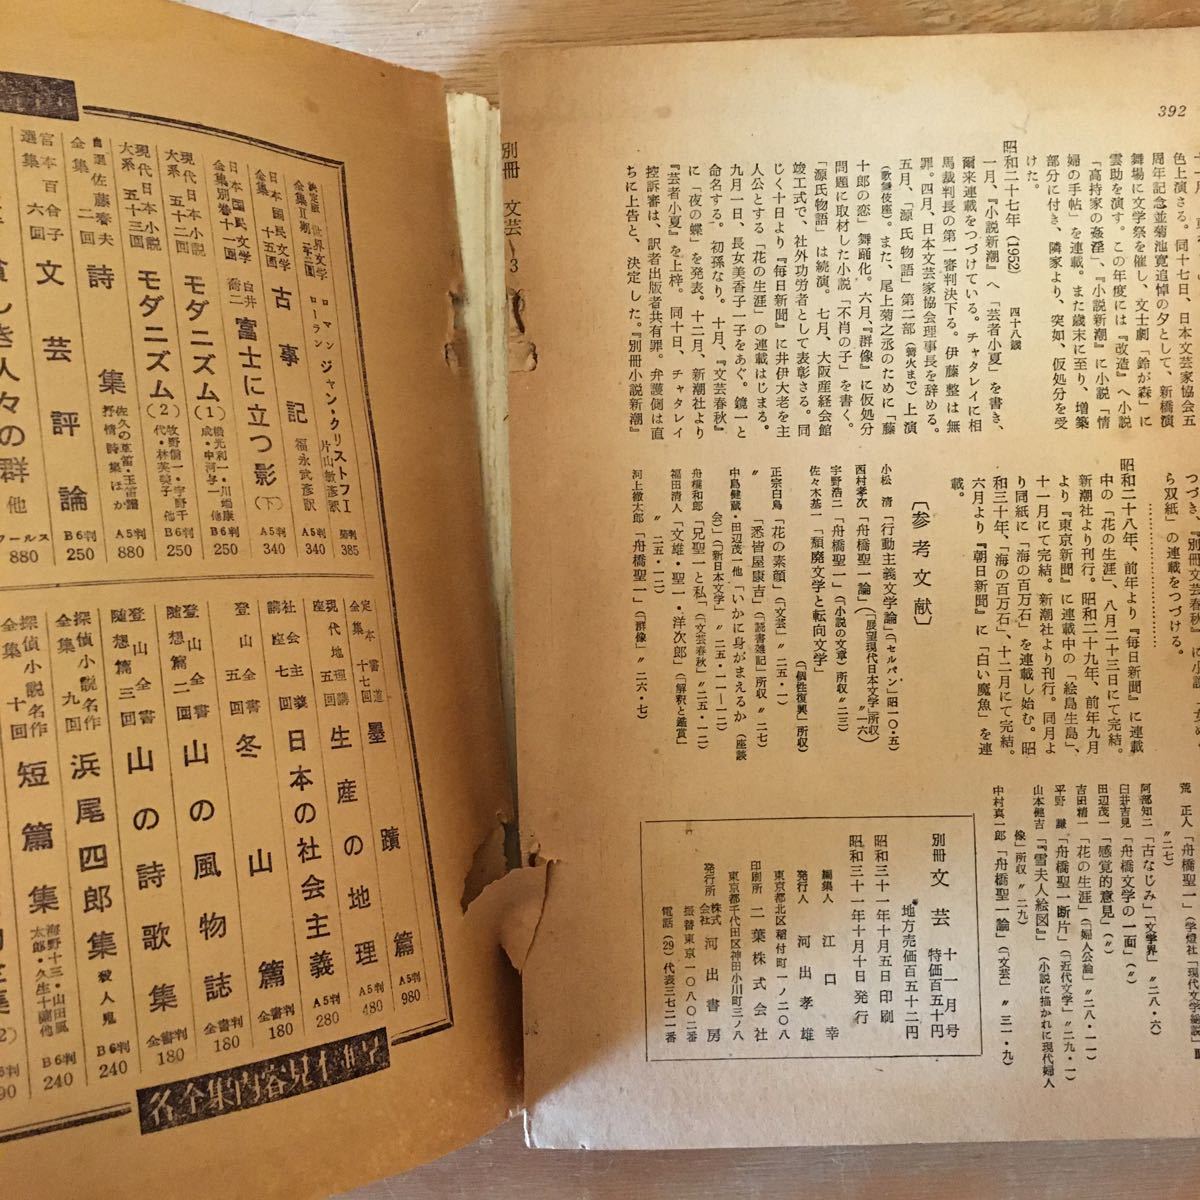 392
周年記念並菊池寛追悼の夕として、新橋演
舞場に文学祭を催し、文士劇「鈴が森」に
雲助を演ず。この年度には『改造』へ小説
「高持家の姦淫」、『小説新潮』に小説「情
婦の手帖」を連載。また歳末に至り、増築
部分に付き、隣家より、突如、仮処分を受
けた。
昭和二十七年（1952） 四十八歳
一月、『小説新潮』へ「芸者小夏」を書き、
爾来連載をつづけている。チャタレイに相
馬裁判長の第一審判決下る。伊藤整は無
罪。四月、日本文芸家協会理事長を辞める。
五月、「源氏物語」第二部（篝火まで）上演
（歌舞伎座）。また、尾上菊之丞のために「藤
十郎の恋」舞踊化。六月、『群像』に仮処分
問題に取材した小説「不肖の子」を書く。
「源氏物語」は続演。七月、大阪産経会館
竣工式で、社外功労者として表彰さる。同
じく十日より『毎日新聞』に井伊大老を主
人公とする「花の生涯」の連載はじまる。
九月一日、長女美香子一子をあぐ。鏡一と
命名する。初孫なり。十月、『文芸春秋』
に「夜の蝶」を発表。十二月、新潮社より
『芸者小夏』を上梓。同十日、チャタレイ
控訴審は、訳者出版者共有罪。弁護側は直
ちに上告と、決定した。『別冊小説新潮』
つづき、『別冊文芸春秋』に小説
ら双紙」の連載をつづける。
昭和二十八年、前年より『毎日新聞』に連載
中の「花の生涯」、八月二十三日にて完結。
新潮社より刊行。昭和二十九年、前年九月
より『東京新聞』に連載中の「絵島生島」、
十一月にて完結。新潮社より刊行。同月よ
り同紙に「海の百万石」を連載し始む。昭
和三十年、「海の百万石」、十二月にて完結。
六月より『朝日新聞』に「白い魔魚」を連
載。
〔参考文献〕
小松 清「行動主義文学論」（「セルパン」昭一〇・五）
西村孝次「舟橋聖一論」（「展望現代日本文学」所収 〃一六）
宇野浩二「舟橋聖一」（「小説の文章」所収 〃二三）
佐々木基一「頽廃文学と転向文学」（「個性復興」所収）
正宗白鳥「花の素顔」（「文芸」〃二五・一）
〃「悉皆屋康吉」（「読書雑記」所収 〃二七）
中島健蔵・田辺茂一他「いかに身がまえるか（座談
会）」（「新日本文学」〃二五・一一－一二）
舟橋和郎「兄聖一と私」（「文芸春秋」〃二五・一二）
福田清人「文雄・聖一・洋次郎」（「解釈と鑑賞」
〃二五・一二）
河上徹太郎「舟橋聖一」（「群像」〃二六・七）
荒 正人「舟橋聖一」（学燈社「現代文学総説」Ⅲ
〃二七）
阿部知二「古なじみ」（「文学界」〃二八・六）
臼井吉見「舟橋文学の一面」（〃）
田辺茂一「感覚的意見」（〃）
吉田精一「花の生涯」（「婦人公論」〃二八・一一）
平野 謙「舟橋聖一断片」（「近代文学」〃二九・一）
山本健吉「『雪夫人絵図』」（小説に描かれた現代婦人
像」所収 〃二九）
中村真一郎「舟橋聖一論」（「文芸」〃三一・九）
別冊文芸 十一月号
特価百五十円
地方売価百五十二円
昭和三十一年十月五日印刷
昭和三十一年十月十日発行
編集人 江口 幸
発行人 河出孝雄
東京都北区稲付町一ノ二〇八
印刷所 二葉株式会社
東京都千代田区神田小川町三ノ八
発行所 株式会社 河出書房
振替東京一〇八〇二番
電話（29）代表三七二一番
別冊 文芸 3
決定版 世界文学全集Ⅱ期 ロマン ローラン ジャン・クリストフⅠ 片山敏彦訳 菊判 385
日本国民文学全集 十五回 古事記 福永武彦訳 A5判 340
日本国民文学全集別巻 十一回 白井喬二 富士に立つ影（下） A5判 340
現代日本小説大系 五十二回 モダニズム（1） 横光利一・川端康成・中河与一他 B6判 250
現代日本小説大系 五十三回 モダニズム（2） 牧野信一・宇野千代・林芙美子他 B6判 250
自選佐藤春夫全集 二回 詩集 佐久の草笛・玉笛譜 抒情詩集ほか A5判 880
宮本百合子選集 六回 文芸評論 B6判 250
貧しき人々の群 他 880
定本書道全集 十七回 墨蹟篇 A5判 980
現代地理講座 五回 生産の地理 A5判 480
社会主義講座 七回 日本の社会主義 A5判 280
登山全書 五回 冬山篇 全書判 180
登山全書随想篇 二回 山の風物誌 全書判 180
登山全書随想篇 三回 山の詩歌集 全書判 180
探偵小説名作全集 九回 浜尾四郎集 殺人鬼 B6判 240
探偵小説名作全集 十回 短篇集 海野十三・山田風太郎・久生十蘭他 B6判 240
名全集内容見本進呈